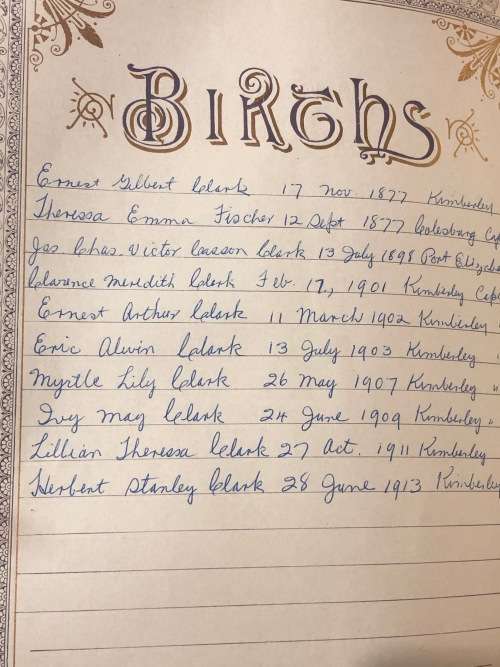 BIRTHS
Ernest Gilbert Clark 17 Nov. 1877 Kimberley
Theressa Emma Fischer 12 Sept 1877 Colesburg Cap
Jas Chas. Victor Casson Clark 13 July 1898 Port Eliz, 
Clarence Meredith Clark Feb. 17, 1901 Kimberley Cape
Ernest Arthur Clark 11 March 1902 Kimberley
Eric Alwin Clark 13 July 1903 Kimberley "
Myrtle Lily Clark 26 May 1907 Kimberley "
Ivy May Clark 24 June 1909 Kimberley "
Lillian Theressa Clark 27 Oct. 1911 Kimberley
Herbert Stanley Clark 28 June 1913 Kimberley